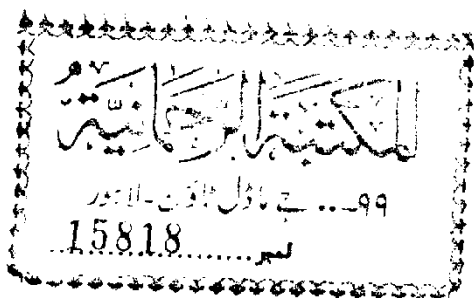 المکتبۃ الرحمانیۃ
۹۹... جے ماڈل ٹاؤن - لاہور
نمبر 15818